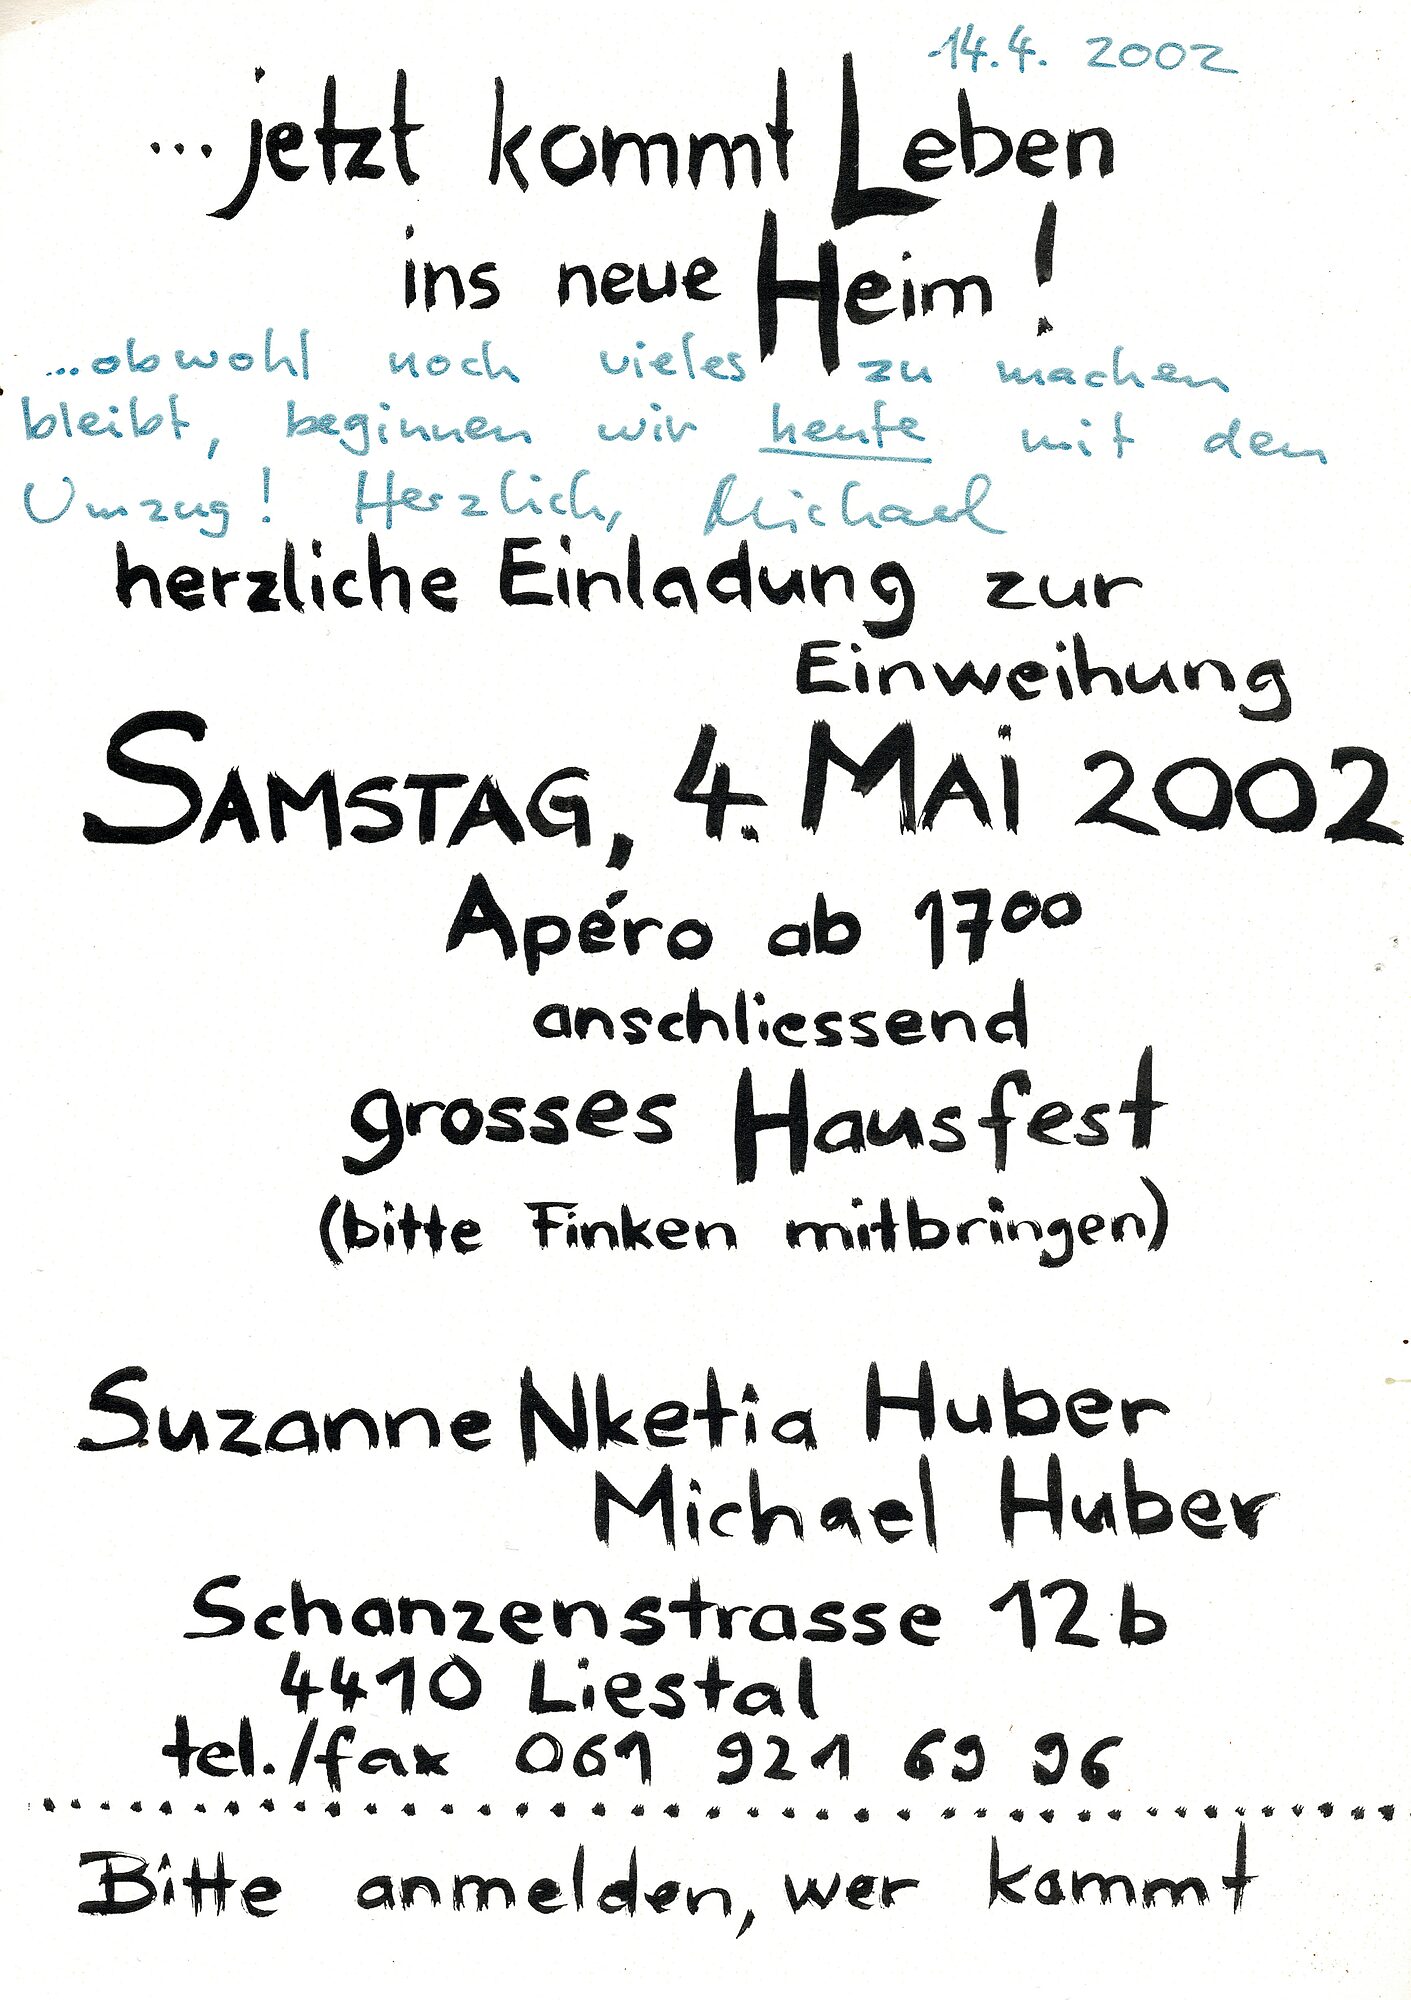 14.4. 2002
...jetzt kommt Leben
ins neue Heim!
...obwohl noch vieles zu machen
bleibt, beginnen wir heute mit dem
Umzug! Herzlich, Michael
herzliche Einladung zur
Einweihung
SAMSTAG, 4. MAi 2002
Apéro ab 17⁰⁰
anschliessend
grosses Hausfest
(bitte Finken mitbringen)
Suzanne Nketia Huber
Michael Huber
Schanzenstrasse 12b
4410 Liestal
tel./fax 061 921 69 96
Bitte anmelden, wer kommt